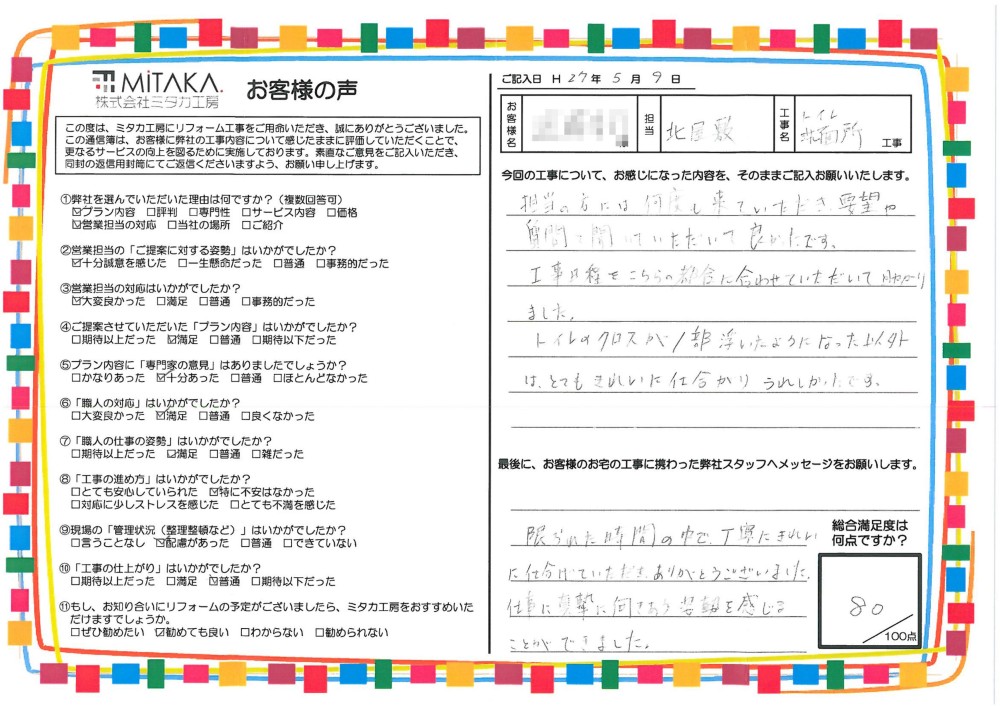 MiTAKA.
株式会社ミタカ工房
お客様の声
この度は、ミタカ工房にリフォーム工事をご用命いただき、誠にありがとうございました。
この通信簿は、お客様に弊社の工事内容について感じたままに評価していただくことで、
更なるサービスの向上を図るために実施しております。素直なご意見をご記入いただき、
同封の返信用封筒にてご返信くださいますよう、お願い申し上げます。
①弊社を選んでいただいた理由は何ですか？（複数回答可）
☑プラン内容 □評判 □専門性 □サービス内容 □価格
☑営業担当の対応 □当社の場所 □ご紹介
②営業担当の「ご提案に対する姿勢」はいかがでしたか？
☑十分誠意を感じた □一生懸命だった □普通 □事務的だった
③営業担当の対応はいかがでしたか？
☑大変良かった □満足 □普通 □事務的だった
④ご提案させていただいた「プラン内容」はいかがでしたか？
□期待以上だった ☑満足 □普通 □期待以下だった
⑤プラン内容に「専門家の意見」はありましたでしょうか？
□かなりあった ☑十分あった □普通 □ほとんどなかった
⑥「職人の対応」はいかがでしたか？
□大変良かった ☑満足 □普通 □良くなかった
⑦「職人の仕事の姿勢」はいかがでしたか？
□期待以上だった ☑満足 □普通 □雑だった
⑧「工事の進め方」はいかがでしたか？
□とても安心していられた ☑特に不安はなかった
□対応に少しストレスを感じた □とても不満を感じた
⑨現場の「管理状況（整理整頓など）」はいかがでしたか？
□言うことなし ☑配慮があった □普通 □できていない
⑩「工事の仕上がり」はいかがでしたか？
□期待以上だった □満足 ☑普通 □期待以下だった
⑪もし、お知り合いにリフォームの予定がございましたら、ミタカ工房をおすすめいた
だけますでしょうか。
□ぜひ勧めたい ☑勧めても良い □わからない □勧められない
ご記入日 H 27年 5月 9日
お客様名
担当 北屋敷
工事名 トイレ 洗面所 工事
今回の工事について、お感じになった内容を、そのままご記入お願いいたします。
担当の方には何度も来ていただき 要望や
質問を聞いていただいて良かったです。
工事日程もこちらの都合に合わせていただいて助かり
ました。
トイレのクロスが1部浮いたようになった以外
は、とてもきれいに仕上がり うれしかったです。
最後に、お客様のお宅の工事に携わった弊社スタッフへメッセージをお願いします。
限られた時間の中で、丁寧にきれい
に仕上げていただき、ありがとうございました。
仕事に真摯に向きあう姿勢を感じる
ことができました。
総合満足度は
何点ですか？
80
100点